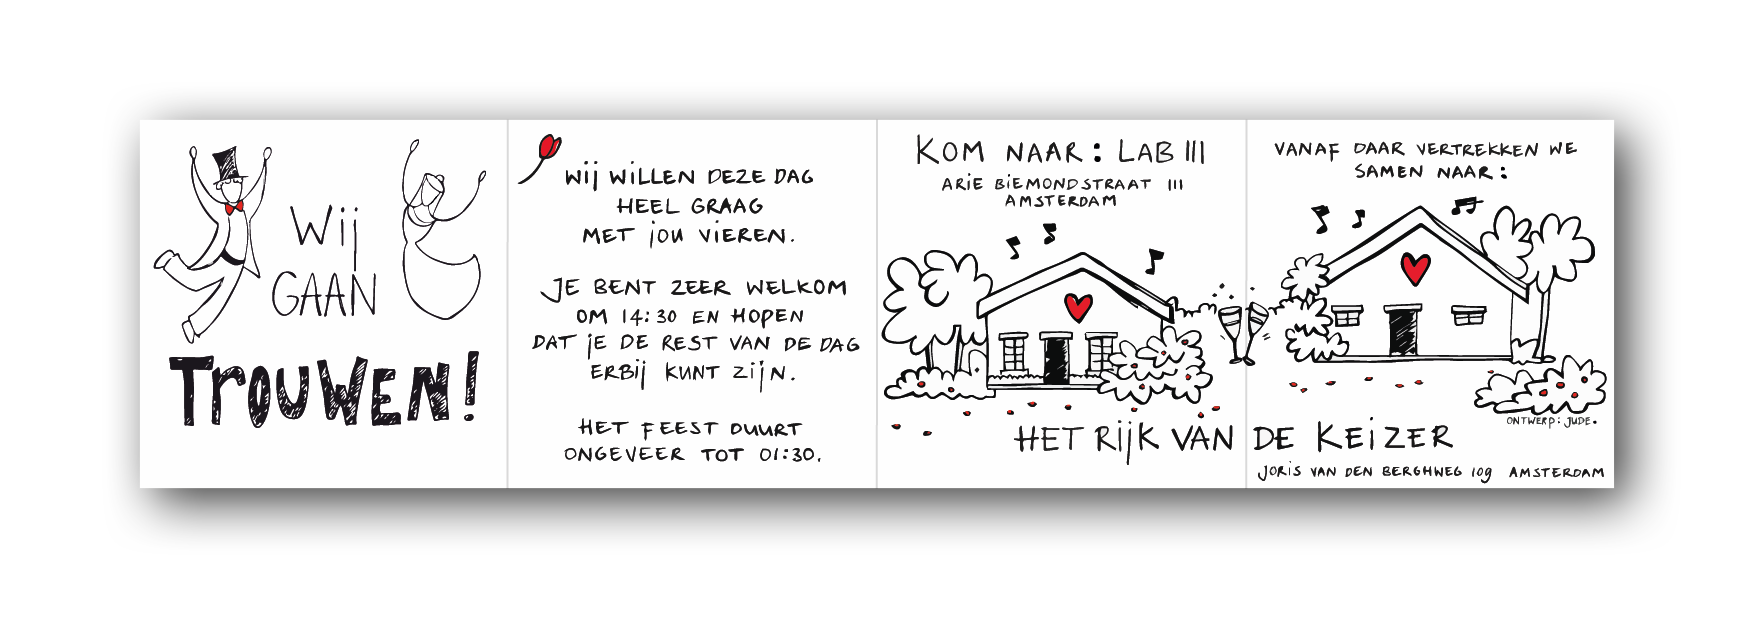 Wij
GAAN
TROUWEN!
WIJ WILLEN DEZE DAG
HEEL GRAAG
MET JOU VIEREN.
JE BENT ZEER WELKOM
OM 14:30 EN HOPEN
DAT JE DE REST VAN DE DAG
ERBIJ KUNT ZIJN.
HET FEEST DUURT
ONGEVEER TOT 01:30.
KOM NAAR: LAB III
ARIE BIEMONDSTRAAT III
AMSTERDAM
VANAF DAAR VERTREKKEN WE
SAMEN NAAR:
ONTWERP: JUDE.
HET RIJK VAN DE KEIZER
JORIS VAN DEN BERGHWEG 109 AMSTERDAM